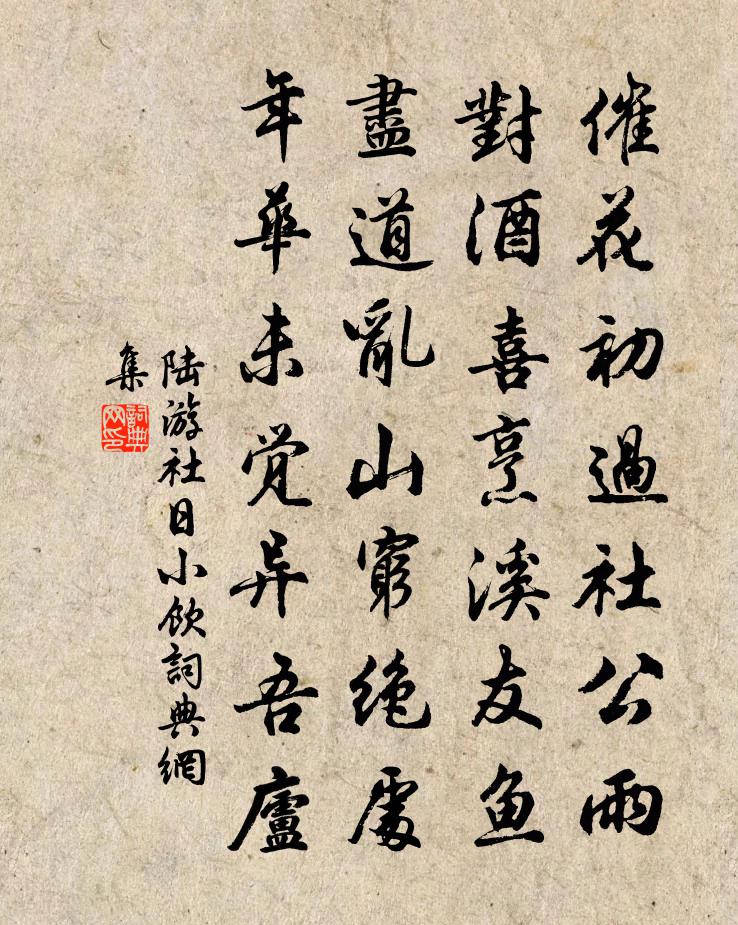 催花初過社公雨
對酒喜烹溪友鱼
盡道亂山窮絶處
年華未觉异吾廬
陆游社日小飲詞典網
集
詞典
网印